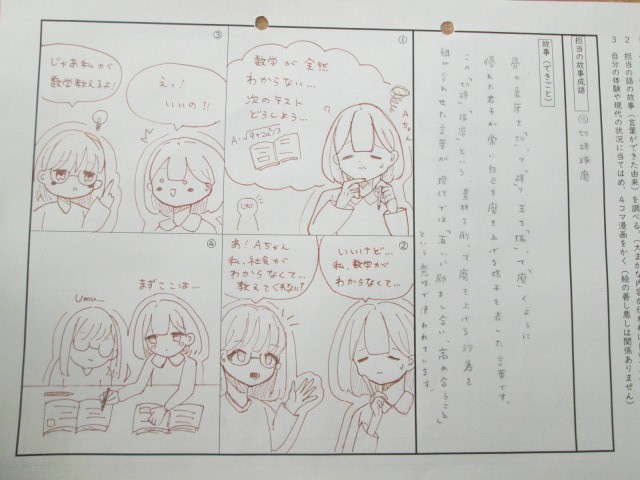 2 担当の語の故事(言葉ができた由来)を調べる。
3 自分の体験や現代の状況に当てはめ、4コマ漫画をかく(絵の善し悪しは関係ありません)
担当の故事成語
切磋琢磨
故事(できごと)
骨や象牙を「切」って「磋」り、玉を「琢」って「磨」くように
優れた君子が常に自己を磨き上げる様子を表した言葉です。
この「切磋」「琢磨」という、素材を削って磨き上げる行為を
組み合わせた言葉が現代では「互いに励まし合い、高め合うこと」
という意味で使われています。
①
数学が全然
わからない…
次のテスト
どうしよう…
Aちゃん
②
いいけど…
私、数学が
わからなくて…
あ!Aちゃん
私、社会が
わからなくて…
教えてくれない?
③
えっ!
いいの?!
じゃあ私が
数学教えるよ!
④
まずここは…
Umu…